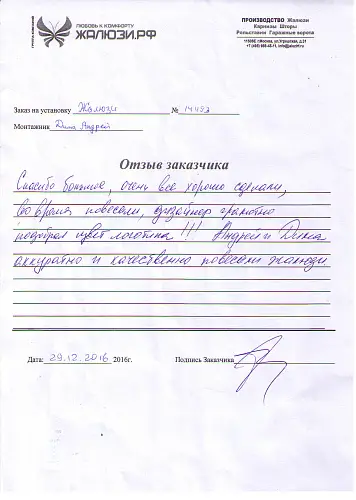 ГРУППА КОМПАНИЙ
ЛЮБОВЬ К КОМФОРТУ
ЖАЛЮЗИ.РФ
ПРОИЗВОДСТВО Жалюзи
Карнизы Шторы
Рольставни Гаражные ворота
Заказ на установку Жалюзи № 14453
Монтажник Дима Андрей
Отзыв заказчика
Спасибо большое, очень все хорошо сделали,
во время повесили, дизайнер грамотно
подобрал цвет логотипа!!! Андрей и Дима
аккуратно и качественно повесили жалюзи
Дата: 29.12.2016 2016г. Подпись Заказчика